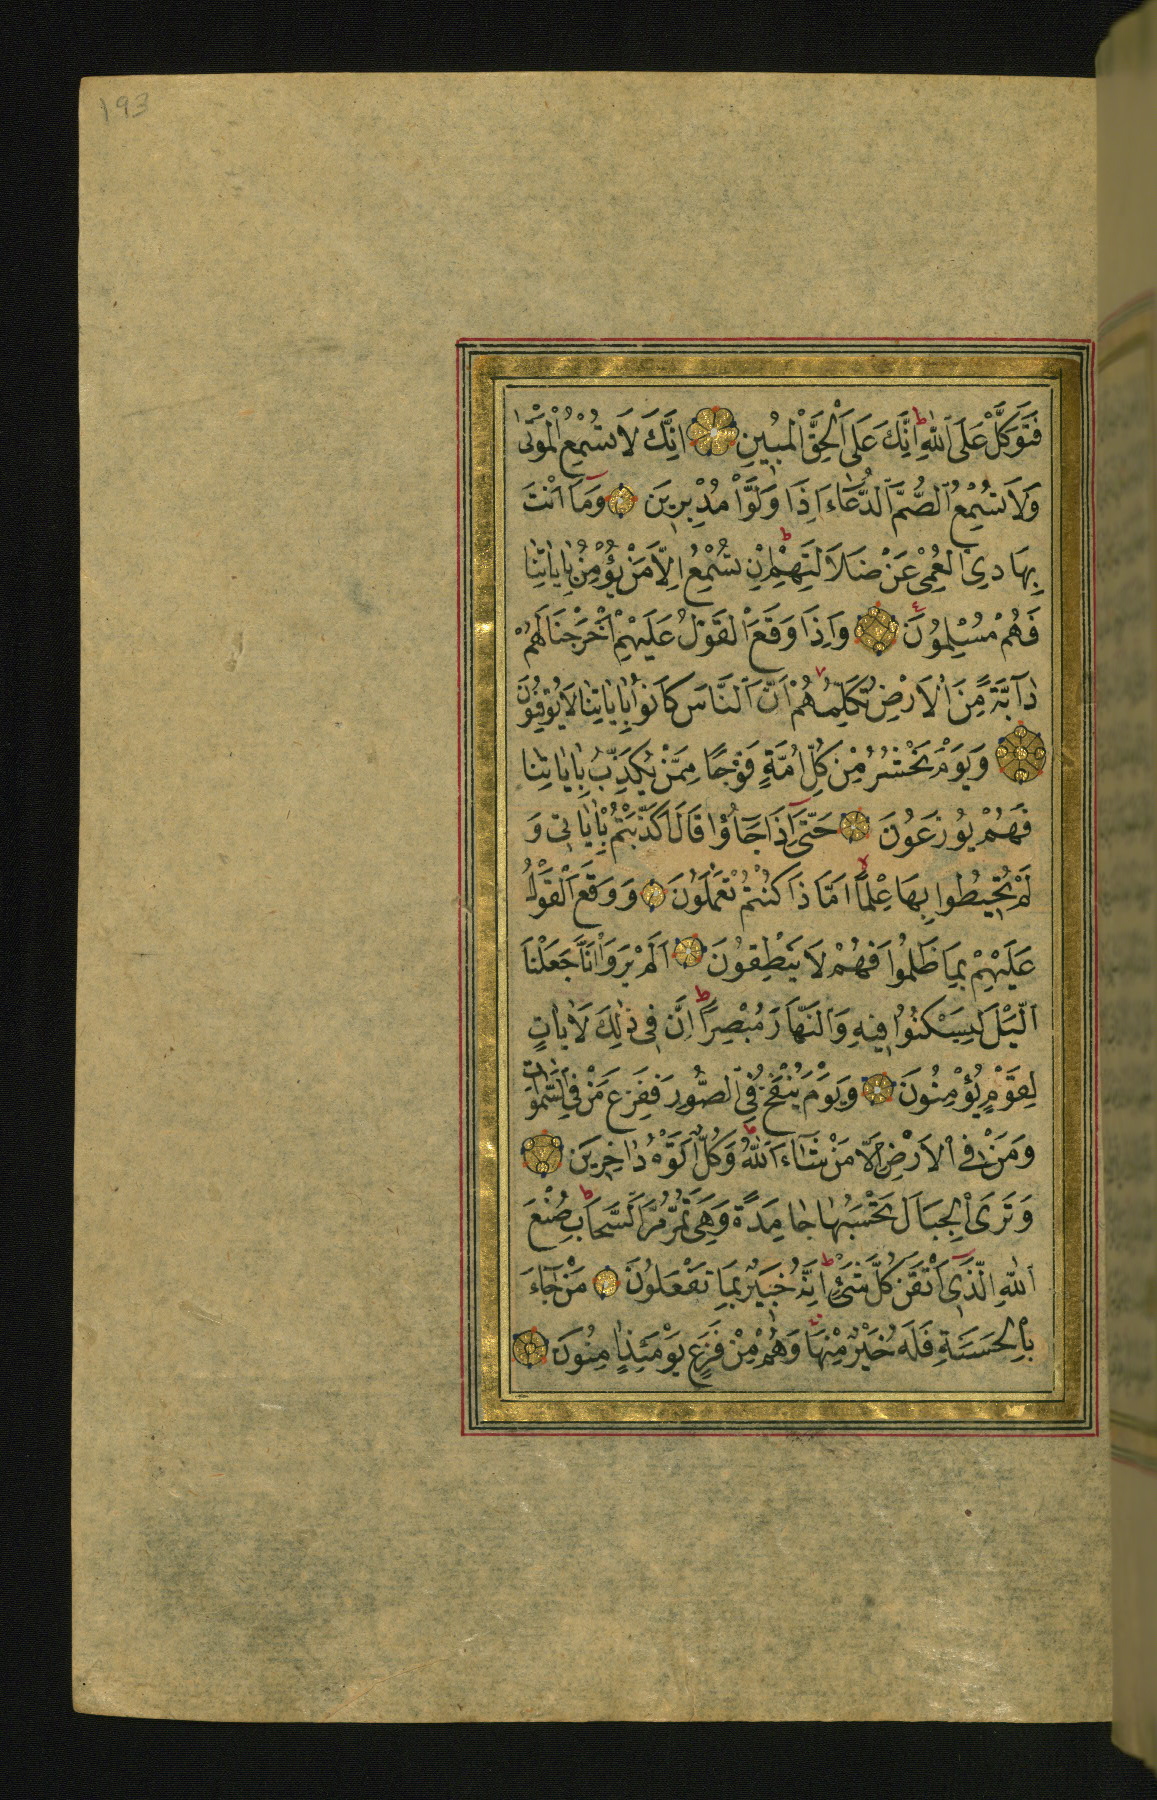 193
فَتَوَكَّلْ عَلَى اللّٰهِ ط اِنَّكَ عَلَى الْحَقِّ الْمُبِينِ اِنَّكَ لَا تُسْمِعُ الْمَوْتٰى
وَلَا تُسْمِعُ الصُّمَّ الدُّعَاءَ اِذَا وَلَّوْا مُدْبِرِينَ وَمَا اَنْتَ
بِهَادِى الْعُمْىِ عَنْ ضَلَالَتِهِمْ ط اِنْ تُسْمِعُ اِلَّا مَنْ يُؤْمِنُ بِاٰيَاتِنَا
فَهُمْ مُسْلِمُونَ ع وَاِذَا وَقَعَ الْقَوْلُ عَلَيْهِمْ اَخْرَجْنَا لَهُمْ
دَآبَّةً مِنَ الْاَرْضِ تُكَلِّمُهُمْ اَنَّ النَّاسَ كَانُوا بِاٰيَاتِنَا لَا يُوقِنُونَ
وَيَوْمَ نَحْشُرُ مِنْ كُلِّ اُمَّةٍ فَوْجًا مِمَّنْ يُكَذِّبُ بِاٰيَاتِنَا
فَهُمْ يُوزَعُونَ حَتّٰى اِذَا جَآؤُا قَالَ اَكَذَّبْتُمْ بِاٰيَاتِى وَ
لَمْ تُحِيطُوا بِهَا عِلْمًا اَمَّا ذَا كُنْتُمْ تَعْمَلُونَ وَوَقَعَ الْقَوْلُ
عَلَيْهِمْ بِمَا ظَلَمُوا فَهُمْ لَا يَنْطِقُونَ اَلَمْ يَرَوْا اَنَّا جَعَلْنَا
الَّيْلَ لِيَسْكُنُوا فِيهِ وَالنَّهَارَ مُبْصِرًا ط اِنَّ فِى ذٰلِكَ لَاٰيَاتٍ
لِقَوْمٍ يُؤْمِنُونَ وَيَوْمَ يُنْفَخُ فِى الصُّورِ فَفَزِعَ مَنْ فِى السَّمٰوَاتِ
وَمَنْ فِى الْاَرْضِ اِلَّا مَنْ شَآءَ اللّٰهُ ط وَكُلٌّ اَتَوْهُ دَاخِرِينَ
وَتَرَى الْجِبَالَ تَحْسَبُهَا جَامِدَةً وَهِىَ تَمُرُّ مَرَّ السَّحَابِ ط صُنْعَ
اللّٰهِ الَّذِى اَتْقَنَ كُلَّ شَىْءٍ ط اِنَّهُ خَبِيرٌ بِمَا تَفْعَلُونَ مَنْ جَآءَ
بِالْحَسَنَةِ فَلَهُ خَيْرٌ مِنْهَا وَهُمْ مِنْ فَزَعٍ يَوْمَئِذٍ اٰمِنُونَ